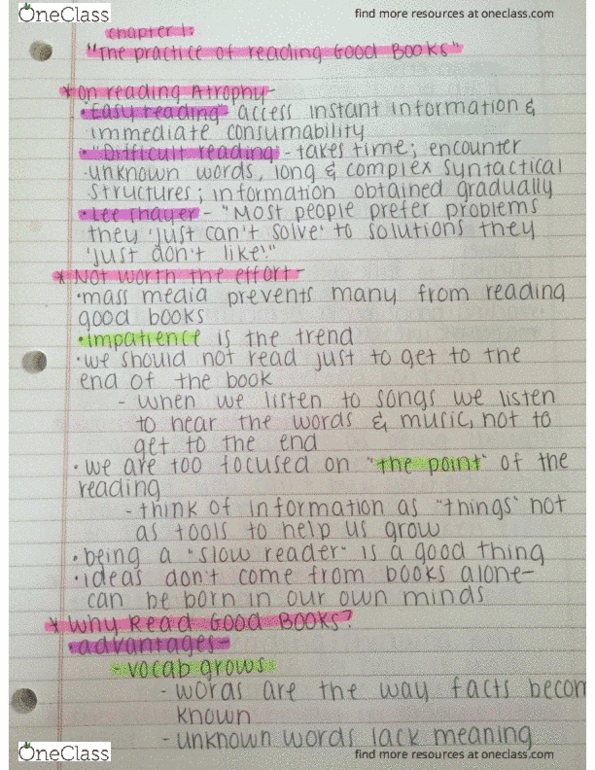 OneClass
find more resources at oneclass.com
chapter 1:
"The practice of reading Good Books"
* On reading Atrophy-
• "Easy reading" - access instant information &
immediate consumability
• "Difficult reading" - takes time; encounter
unknown words, long & complex syntactical
structures; information obtained gradually
• Lee Thayer - "Most people prefer problems
they 'just can't solve' to solutions they
'just don't like'."
* Not worth the effort-
• mass media prevents many from reading
good books
• impatience is the trend
• we should not read just to get to the
end of the book
- when we listen to songs we listen
to hear the words & music, not to
get to the end
• we are too focused on "the point" of the
reading
- think of information as "things" not
as tools to help us grow
• being a "slow reader" is a good thing
• ideas don't come from books alone-
can be born in our own minds
* Why Read Good Books?
• advantages-
- vocab grows
- words are the way facts becom
known
- unknown words lack meaning
OneClass
find more resources at oneclass.com